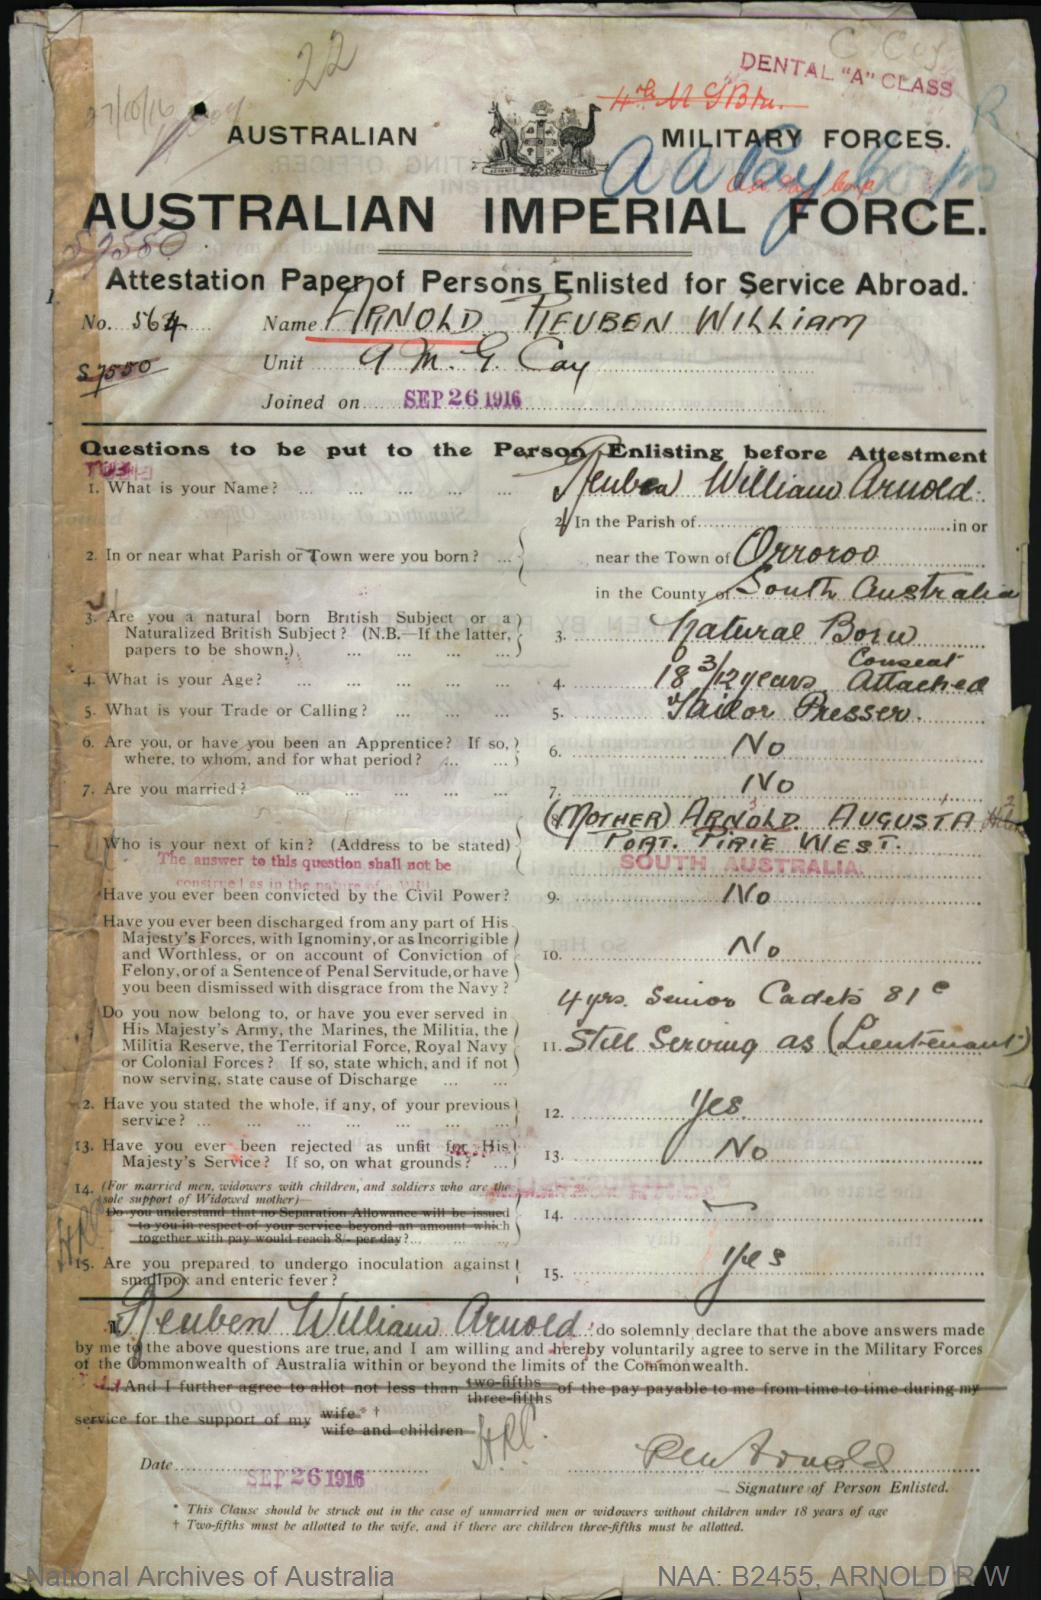 22
DENTAL "A" CLASS
27/10/16
AUSTRALIAN MILITARY FORCES.
A A Pay Corps
AUSTRALIAN IMPERIAL FORCE.
S7550
Attestation Paper of Persons Enlisted for Service Abroad.
No. 564 Name ARNOLD REUBEN WILLIAM
S7550 Unit 9 M. G. Coy
Joined on SEP 26 1916
Questions to be put to the Person Enlisting before Attestment
1. What is your Name? ... Reuben William Arnold.
2. In the Parish of in or
2. In or near what Parish or Town were you born? ... near the Town of Orroroo
in the County of South Australia
3. Are you a natural born British Subject or a
Naturalized British Subject? (N.B.—If the latter, 3. Natural Born
papers to be shown.)
Consent
4. What is your Age? 4. 18 3/12 years Attached
5. What is your Trade or Calling? 5. Tailor Presser.
6. Are you, or have you been an Apprentice? If so, 6. No
where, to whom, and for what period?
7. Are you married? 7. No
8. (MOTHER) ARNOLD AUGUSTA
Who is your next of kin? (Address to be stated) PORT. PIRIE WEST.
The answer to this question shall not be SOUTH AUSTRALIA.
construed as in the nature of a will
Have you ever been convicted by the Civil Power? 9. No
Have you ever been discharged from any part of His
Majesty's Forces, with Ignominy, or as Incorrigible
and Worthless, or on account of Conviction of 10. No
Felony, or of a Sentence of Penal Servitude, or have
you been dismissed with disgrace from the Navy?
4 yrs. Senior Cadets 81c
Do you now belong to, or have you ever served in
His Majesty's Army, the Marines, the Militia, the
Militia Reserve, the Territorial Force, Royal Navy 11. Still Serving as (Lieutenant)
or Colonial Forces? If so, state which, and if not
now serving, state cause of Discharge
2. Have you stated the whole, if any, of your previous 12. Yes.
service?
13. Have you ever been rejected as unfit for His 13. No
Majesty's Service? If so, on what grounds?
14. (For married men, widowers with children, and soldiers who are the
sole support of Widowed mother)—
Do you understand that no Separation Allowance will be issued 14. —
to you in respect of your service beyond an amount which
together with pay would reach 8/- per day?
15. Are you prepared to undergo inoculation against 15. Yes
smallpox and enteric fever?
I, Reuben William Arnold do solemnly declare that the above answers made
by me to the above questions are true, and I am willing and hereby voluntarily agree to serve in the Military Forces
of the Commonwealth of Australia within or beyond the limits of the Commonwealth.
And I further agree to allot not less than two-fifths three-fifths of the pay payable to me from time to time during my
service for the support of my wife* † wife and children
Date SEP 26 1916 R W Arnold
Signature of Person Enlisted.
* This Clause should be struck out in the case of unmarried men or widowers without children under 18 years of age
† Two-fifths must be allotted to the wife, and if there are children three-fifths must be allotted.
National Archives of Australia NAA: B2455, ARNOLD R W